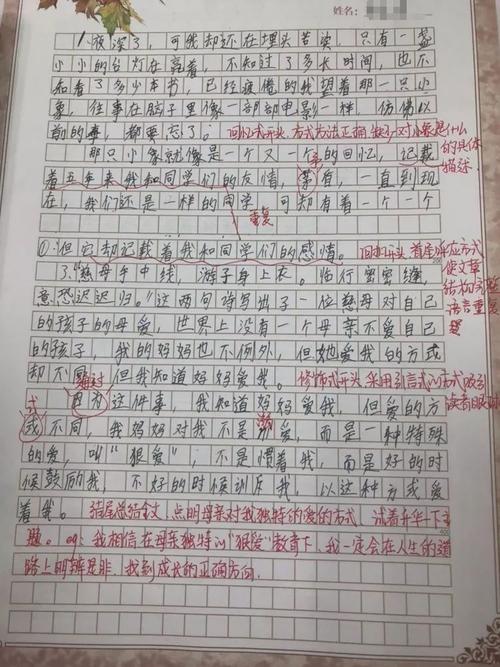 姓名:
1.夜深了，可我却还在埋头苦读，只有一盏
小小的台灯在亮着，不知过了多长时间，也不
知看了多少本书，已经疲倦的我望着那一只小
象，往事在脑子里像一部部电影一样，仿佛以
前的事，都要忘了。回忆式开头，方式方法正确，缺少对小象是什么
的具体
描述.
那只小象就像是一个又一个的回忆，记载
着五年来我和同学们的友情，等自，一直到现
在，我们还是一样的同学，可却有着一个个
重复
①.但它却记载着我和同学们的感情。回扣开头 首尾呼应方式
使文章
结构完整
语言重复
3."慈母手中线，游子身上衣。临行密密缝，
意恐迟迟归。"这两句诗写出了一位慈母对自己
的孩子的母爱，世界上没有一个母亲不爱自己
的孩子，我的妈妈也不例外，但她爱我的方式
却不同，但我知道妈妈爱我。修饰式开头，采用引言式的方式吸引
读者眼球
通过
因为这件事，我知道妈妈爱我，但爱的方
式
式不同，我妈妈对我不是溺爱，而是一种特殊
的爱，叫"狠爱"，不是惯着我，而是好的时
候鼓励我，不好的时候训斥我，以这种方式爱
着我。结尾总结全文，点明母亲对我独特的爱的方式，试着升华一下主
题。eg:我相信在母亲独特的"狠爱"教育下，我一定会在人生的道
路上明辨是非，找到成长的正确方向.